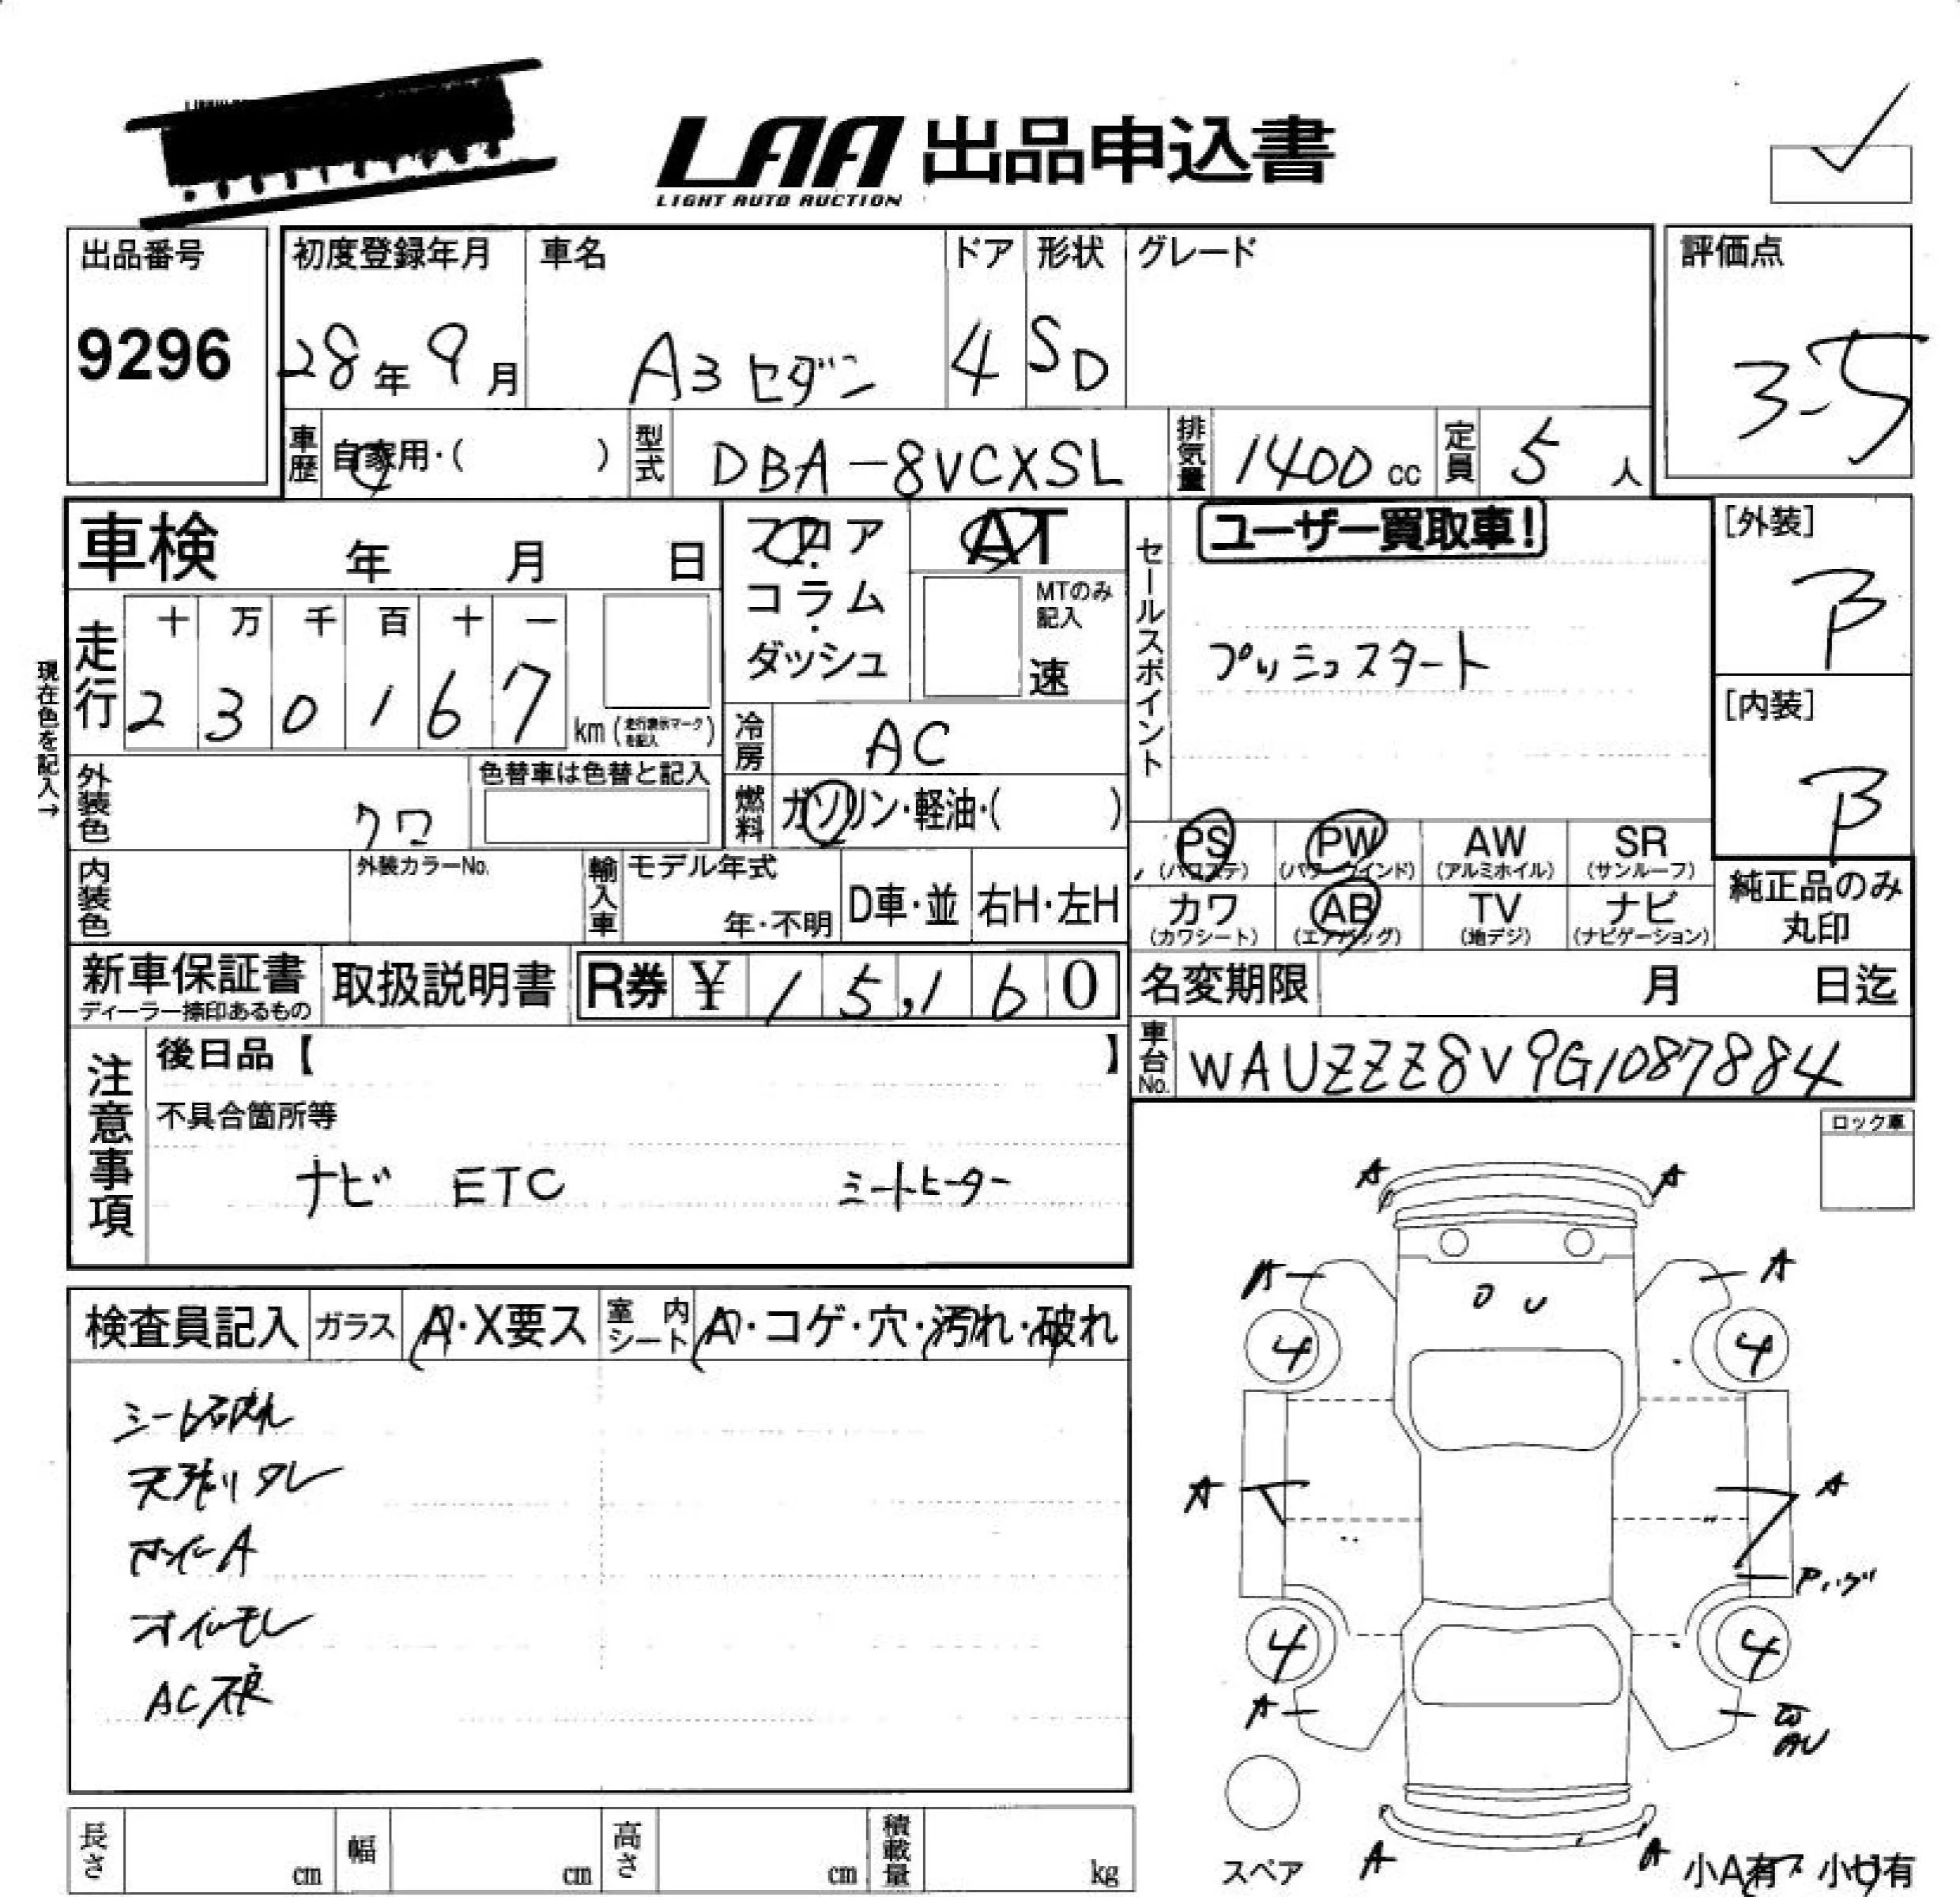 LAA 出品申込書
LIGHT AUTO AUCTION
出品番号
9296
初度登録年月
28年9月
車名
A3 セダン
ドア
4
形状
SD
グレード
評価点
3.5
車歴 自家用・( )
型式 DBA-8VCXSL
排気量 1400 cc
定員 5 人
車検 年 月 日
フロア・コラム・ダッシュ
AT
MTのみ記入
速
セールスポイント
ユーザー買取車!
プッシュスタート
[外装]
B
[内装]
B
現在色を記入→
走行
十 万 千 百 十 一
2 3 0 1 6 7
km (走行表示マークを記入)
冷房 AC
外装色 クロ
色替車は色替と記入
燃料 ガソリン・軽油・( )
PS PW AW SR
(パワステ) (パワーウインド) (アルミホイル) (サンルーフ)
カワ AB TV ナビ
(カワシート) (エアバッグ) (地デジ) (ナビゲーション)
純正品のみ
丸印
内装色
外装カラーNo.
輸入車
モデル年式
年・不明
D車・並
右H・左H
新車保証書
ディーラー捺印あるもの
取扱説明書
R券 ¥ 15,160
名変期限 月 日迄
車台No. WAUZZZ8V9G1087884
注意事項
後日品【 】
不具合箇所等
ナビ ETC シートヒーター
ロック車
検査員記入
ガラス A・X要ス
室内シート A・コゲ・穴・汚れ・破れ
シート破れ
天張りタレ
ホイールA
オイルモレ
AC不良
A A
A A
4 4
A A
4 4
A
AU
A A
スペア
小A有 小U有
長さ cm
幅 cm
高さ cm
積載量 kg